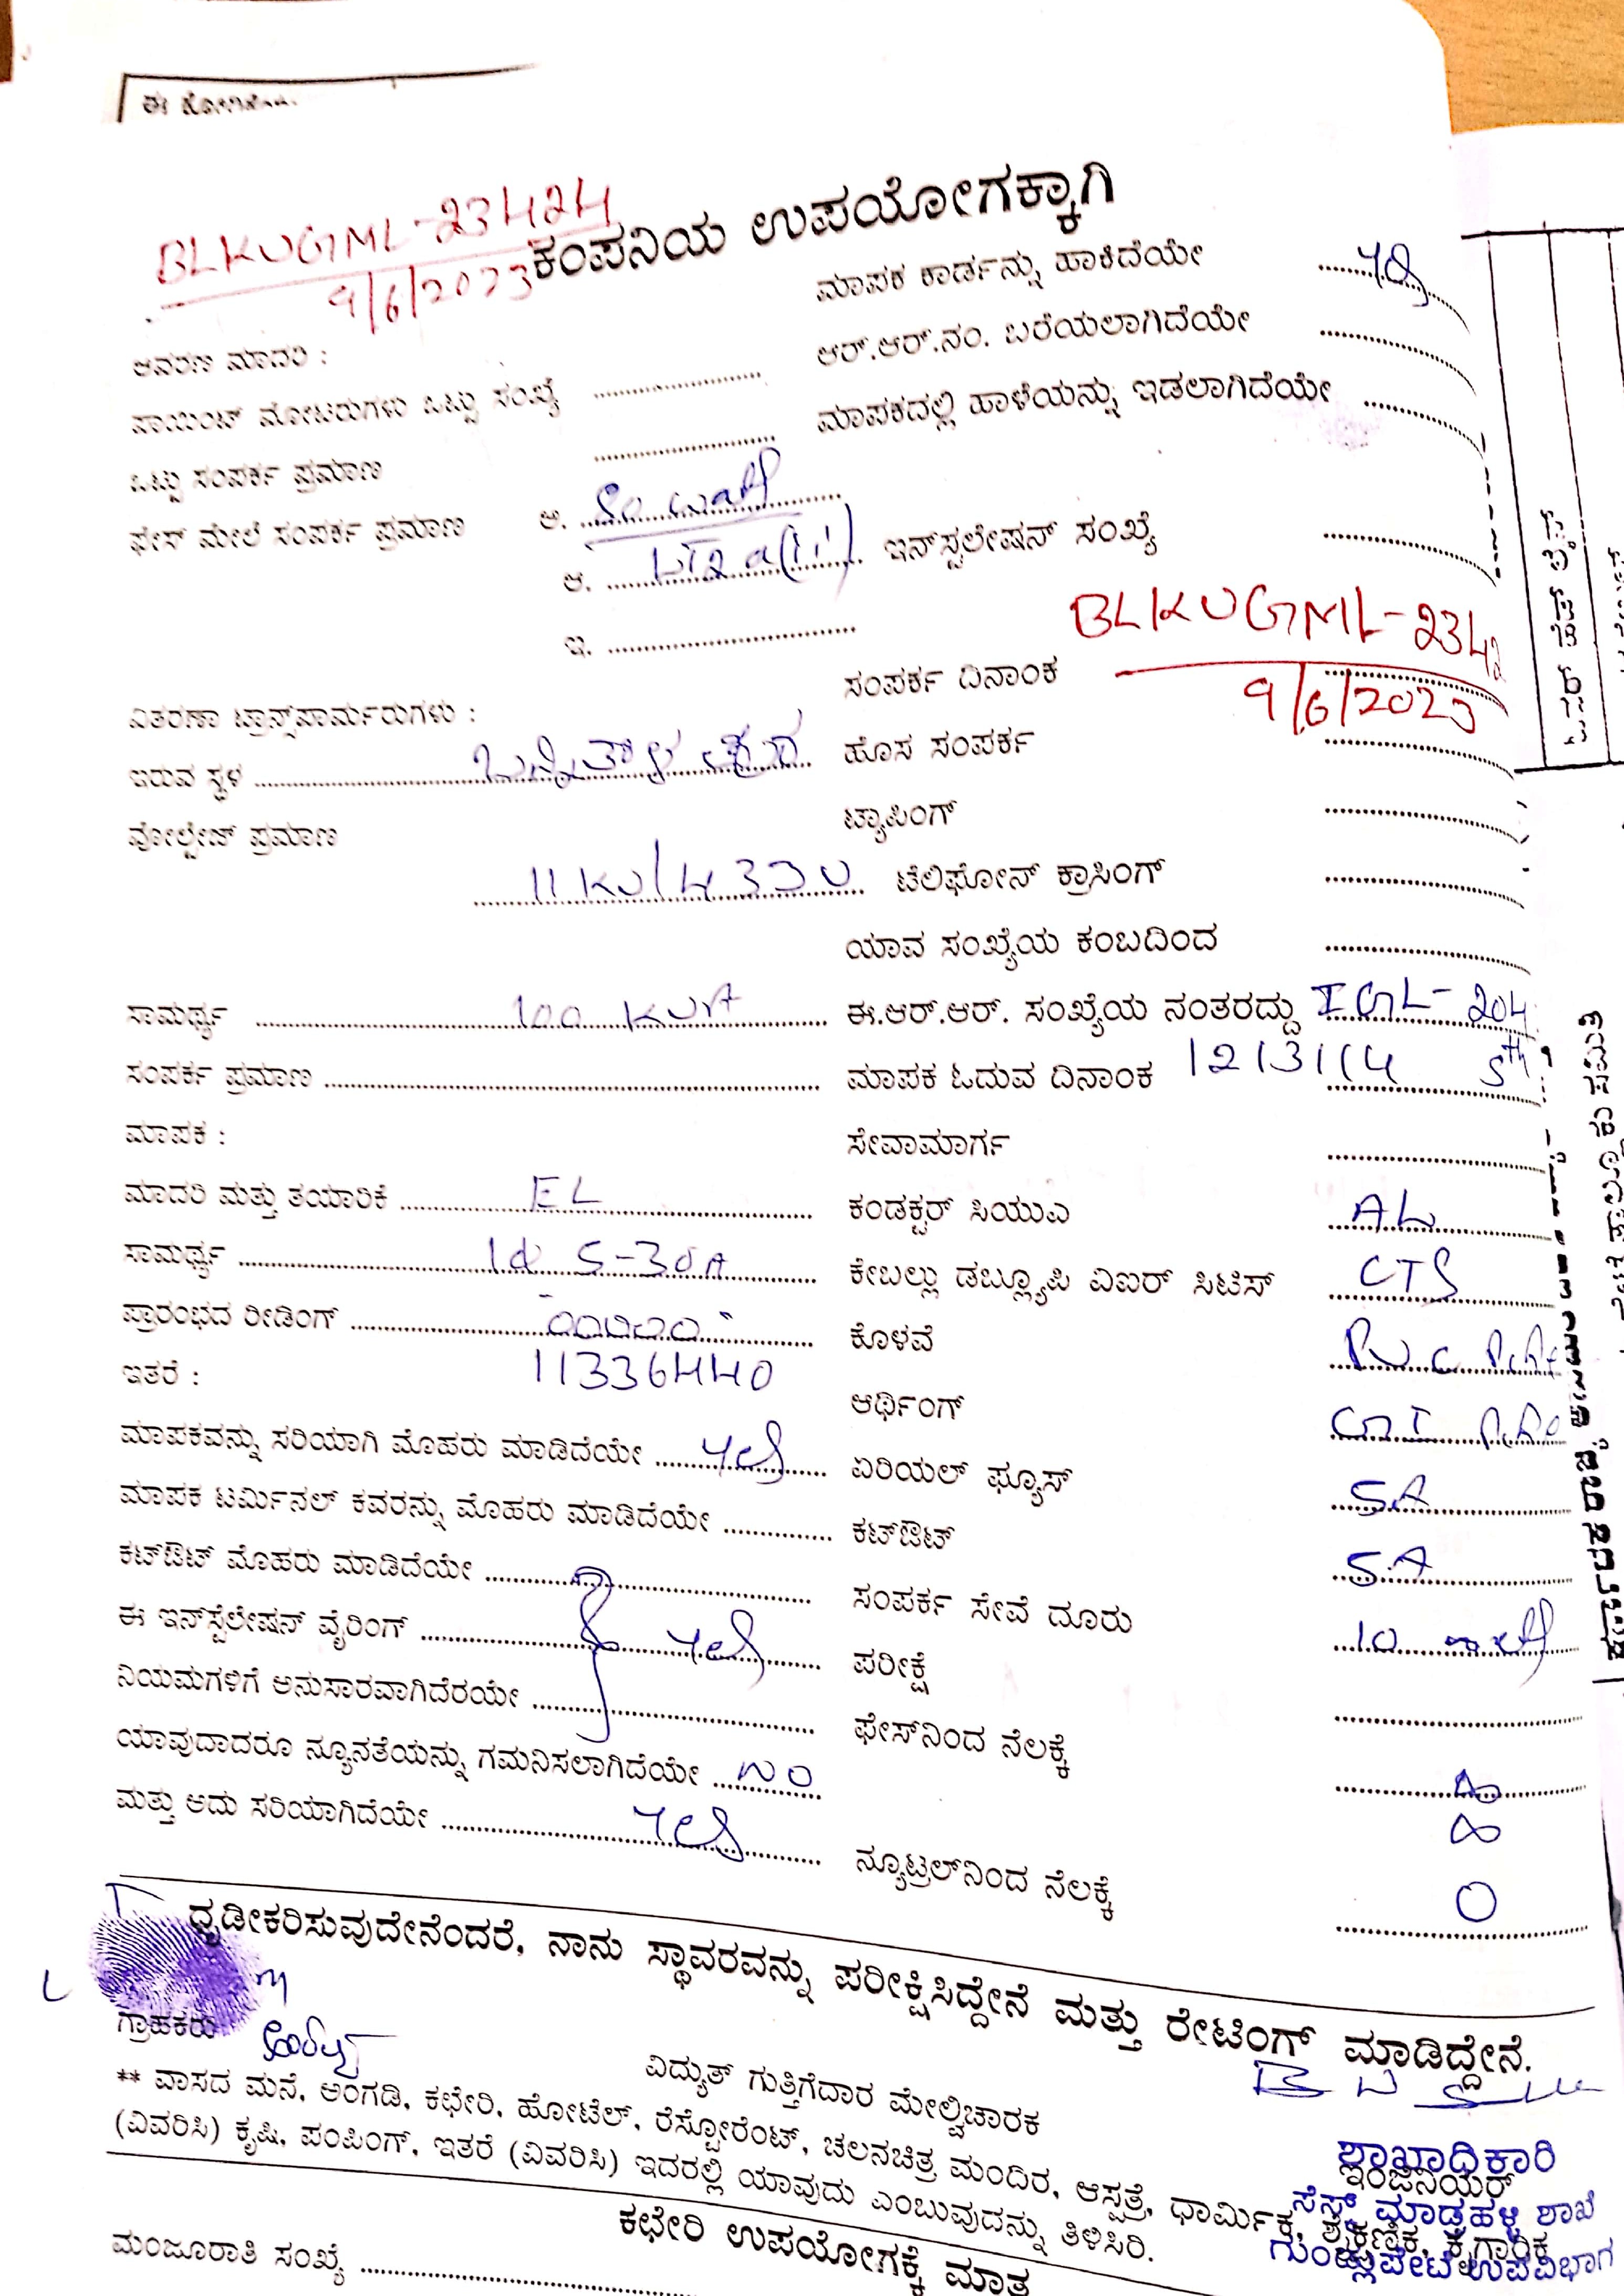 BLKUGML-23424
9/6/2023
ಕಂಪನಿಯ ಉಪಯೋಗಕ್ಕಾಗಿ
ಮಾಪಕ ಕಾರ್ಡನ್ನು ಹಾಕಿದೆಯೇ yes
ಆವರಣ ಮಾದರಿ :
ಆರ್.ಆರ್.ನಂ. ಬರೆಯಲಾಗಿದೆಯೇ
ಪಾಯಿಂಟ್ ಮೋಟರುಗಳು ಒಟ್ಟು ಸಂಖ್ಯೆ
ಮಾಪಕದಲ್ಲಿ ಹಾಳೆಯನ್ನು ಇಡಲಾಗಿದೆಯೇ
ಒಟ್ಟು ಸಂಪರ್ಕ ಪ್ರಮಾಣ
ಫೇಸ್ ಮೇಲೆ ಸಂಪರ್ಕ ಪ್ರಮಾಣ ಅ. 80 watt
ಆ. LT2 a(ii) ಇನ್‌ಸ್ಟಲೇಷನ್ ಸಂಖ್ಯೆ
ಇ. BLKUGML-2342
ಸಂಪರ್ಕ ದಿನಾಂಕ 9/6/2023
ವಿತರಣಾ ಟ್ರಾನ್ಸ್‌ಫಾರ್ಮರುಗಳು :
ಇರುವ ಸ್ಥಳ
ಹೊಸ ಸಂಪರ್ಕ
ವೋಲ್ಟೇಜ್ ಪ್ರಮಾಣ
ಟ್ಯಾಪಿಂಗ್
11 KV/433V ಟೆಲಿಫೋನ್ ಕ್ರಾಸಿಂಗ್
ಯಾವ ಸಂಖ್ಯೆಯ ಕಂಬದಿಂದ
ಸಾಮರ್ಥ್ಯ 100 KVA ಈ.ಆರ್.ಆರ್. ಸಂಖ್ಯೆಯ ನಂತರದ್ದು IGL-204
ಸಂಪರ್ಕ ಪ್ರಮಾಣ ಮಾಪಕ ಓದುವ ದಿನಾಂಕ 1213114 5th
ಮಾಪಕ : ಸೇವಾಮಾರ್ಗ
ಮಾದರಿ ಮತ್ತು ತಯಾರಿಕೆ EL ಕಂಡಕ್ಟರ್ ಸಿಯುಎ AL
ಸಾಮರ್ಥ್ಯ 5-30A ಕೇಬಲ್ಲು ಡಬ್ಲ್ಯೂಪಿ ವಿಐಆರ್ ಸಿಟಿಸ್ CTS
ಪ್ರಾರಂಭದ ರೀಡಿಂಗ್ 00000 ಕೊಳವೆ PVC
ಇತರೆ : 11336440 ಆರ್ಥಿಂಗ್ GI
ಮಾಪಕವನ್ನು ಸರಿಯಾಗಿ ಮೊಹರು ಮಾಡಿದೆಯೇ yes ಏರಿಯಲ್ ಫ್ಯೂಸ್ 5A
ಮಾಪಕ ಟರ್ಮಿನಲ್ ಕವರನ್ನು ಮೊಹರು ಮಾಡಿದೆಯೇ ಕಟ್‌ಔಟ್ 5A
ಕಟ್‌ಔಟ್ ಮೊಹರು ಮಾಡಿದೆಯೇ ಸಂಪರ್ಕ ಸೇವೆ ದೂರು 10
ಈ ಇನ್‌ಸ್ಟೆಲೇಷನ್ ವೈರಿಂಗ್ yes ಪರೀಕ್ಷೆ
ನಿಯಮಗಳಿಗೆ ಅನುಸಾರವಾಗಿದೆರಯೇ ಫೇಸ್‌ನಿಂದ ನೆಲಕ್ಕೆ ∞
ಯಾವುದಾದರೂ ನ್ಯೂನತೆಯನ್ನು ಗಮನಿಸಲಾಗಿದೆಯೇ NO ∞
ಮತ್ತು ಅದು ಸರಿಯಾಗಿದೆಯೇ yes ನ್ಯೂಟ್ರಲ್‌ನಿಂದ ನೆಲಕ್ಕೆ 0
ದೃಡೀಕರಿಸುವುದೇನೆಂದರೆ, ನಾನು ಸ್ಥಾವರವನ್ನು ಪರೀಕ್ಷಿಸಿದ್ದೇನೆ ಮತ್ತು ರೇಟಿಂಗ್ ಮಾಡಿದ್ದೇನೆ.
ಗ್ರಾಹಕರು ವಿದ್ಯುತ್ ಗುತ್ತಿಗೆದಾರ ಮೇಲ್ವಿಚಾರಕ
ಶಾಖಾಧಿಕಾರಿ
ಇಂಜಿನಿಯರ್
ಸೆಸ್ಕ್ ಮಾಡ್ರಹಳ್ಳಿ ಶಾಖೆ
ಗುಂಡ್ಲುಪೇಟೆ ಉಪವಿಭಾಗ
** ವಾಸದ ಮನೆ, ಅಂಗಡಿ, ಕಛೇರಿ, ಹೋಟೆಲ್, ರೆಸ್ಟೋರೆಂಟ್, ಚಲನಚಿತ್ರ ಮಂದಿರ, ಆಸ್ಪತ್ರೆ, ಧಾರ್ಮಿಕ, ಶೈಕ್ಷಣಿಕ, ಕೈಗಾರಿಕ
(ವಿವರಿಸಿ) ಕೃಷಿ, ಪಂಪಿಂಗ್, ಇತರೆ (ವಿವರಿಸಿ) ಇದರಲ್ಲಿ ಯಾವುದು ಎಂಬುವುದನ್ನು ತಿಳಿಸಿರಿ.
ಕಛೇರಿ ಉಪಯೋಗಕ್ಕೆ ಮಾತ್ರ
ಮಂಜೂರಾತಿ ಸಂಖ್ಯೆ